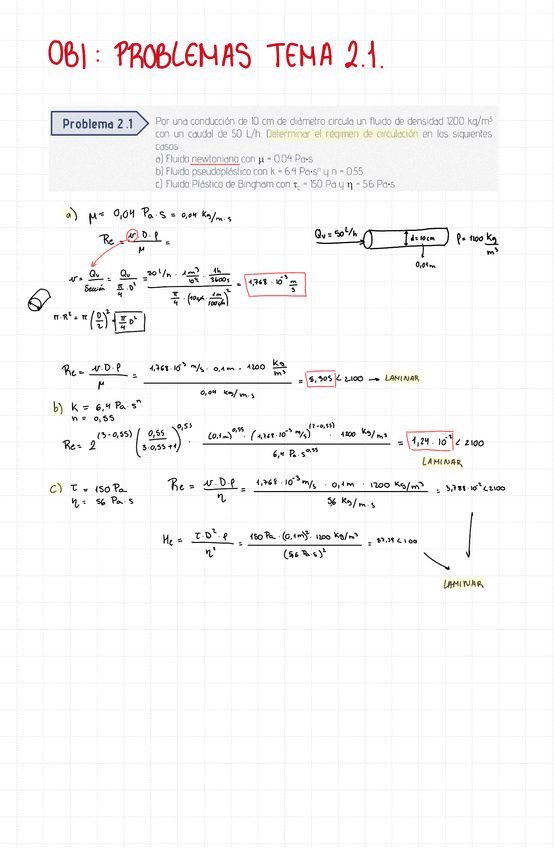 OBI: PROBLEMAS TEMA 2.1.
Problema 2.1
Por una conducción de 10 cm de diámetro circula un fluido de densidad 1200 kg/m³
con un caudal de 50 L/h. Determinar el régimen de circulación en los siguientes
casos:
a) Fluido newtoniano con μ = 0.04 Pa•s
b) Fluido pseudoplástico con k = 6.4 Pa•sⁿ y n = 0.55
c) Fluido Plástico de Bingham con τ꜀ = 150 Pa y η = 56 Pa•s
a) μ = 0,04 Pa.s = 0,04 kg/m.s
Re = v.D.ρ / μ =
Qv = 50 L/h d=10cm ρ= 1200 kg/m³
0,01m
v = Qv / Sección = Qv / π/4 . D² = 50 L/h . 1m³/10³ . 1h/3600s / π/4 . (10cm . 1m/100cm)² = 1,768 . 10⁻³ m/s
π.R² = π (D/2)² = π/4 D²
Re = v.D.ρ / μ = 1,768.10⁻³ m/s . 0,1m . 1200 kg/m³ / 0,04 kg/m.s = 5,305 < 2100 → LAMINAR
b) k = 6,4 Pa.sⁿ
n = 0,55
Re = 2^(3-0,55) (0,55 / 3.0,55+1)^0,55 . (0,1m)^0,55 . (1,768.10⁻³ m/s)^(2-0,55) . 1200 kg/m³ / 6,4 Pa.s^0,55 = 1,24 . 10⁻² < 2100
LAMINAR
c) τ = 150 Pa
η = 56 Pa.s
Re = v.D.ρ / η = 1,768.10⁻³ m/s . 0,1m . 1200 kg/m³ / 56 kg/m.s = 3,788.10⁻³ < 2100
He = τ.D².ρ / η² = 150 Pa . (0,1m)² . 1200 kg/m³ / (56 Pa.s)² = 57,39 < 100
LAMINAR